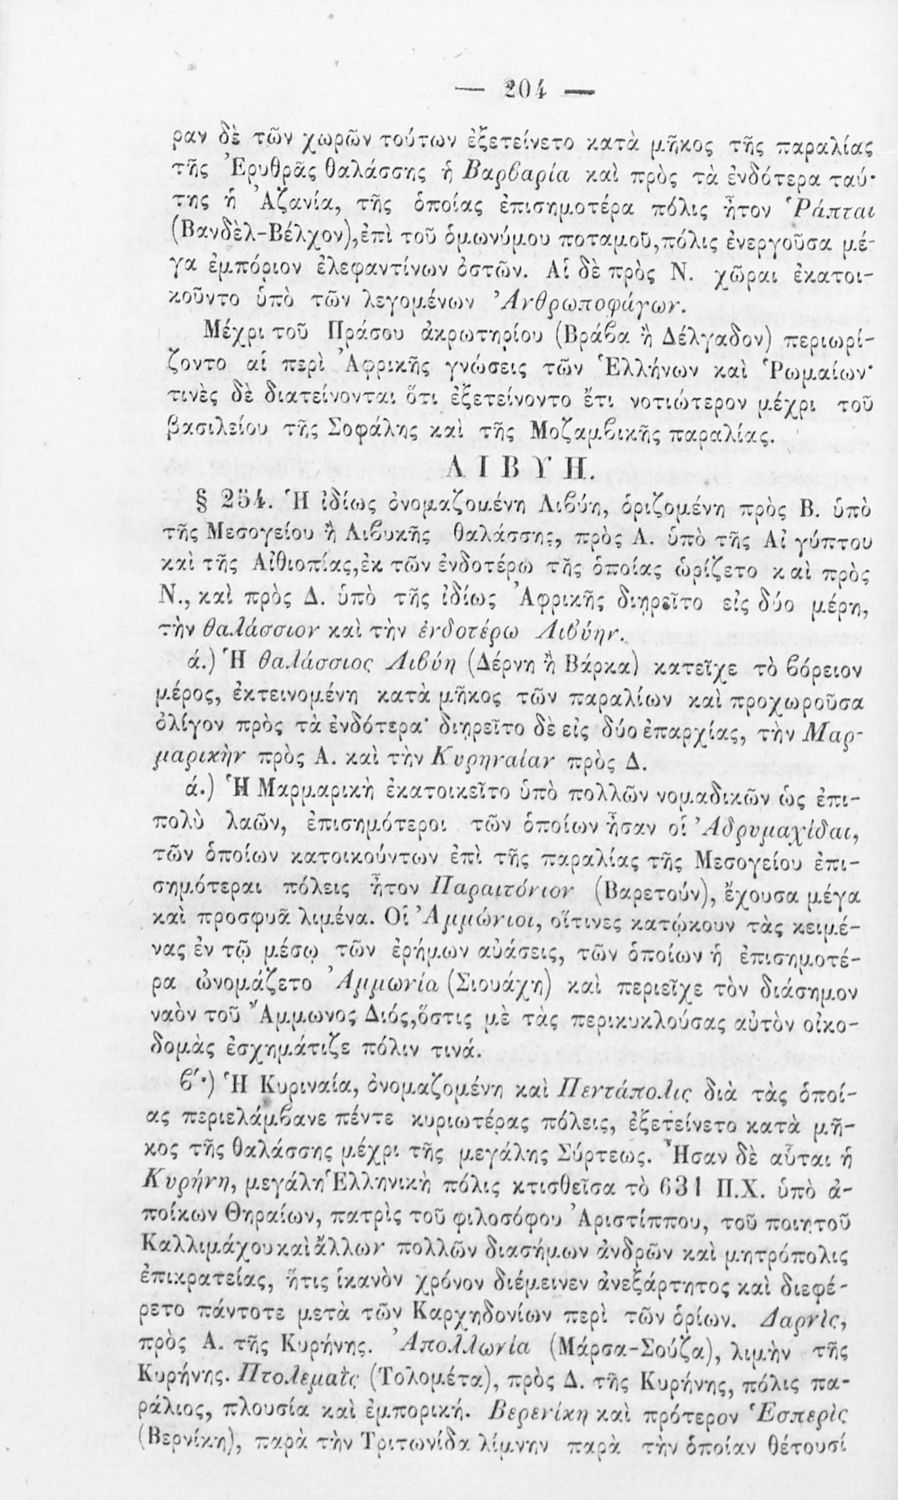 — 204 —
ραν δὲ τῶν χωρῶν τούτων ἐξετείνετο κατὰ μῆκος τῆς παραλίας
τῆς Ἐρυθρᾶς θαλάσσης ἡ Βαρβαρία καὶ πρὸς τὰ ἐνδότερα ταύ-
της ἡ Ἀζανία, τῆς ὁποίας ἐπισημοτέρα πόλις ἦτον Ῥάπται
(Βανδὲλ-Βέλχον),ἐπὶ τοῦ ὁμωνύμου ποταμοῦ,πόλις ἐνεργοῦσα μέ-
γα ἐμπόριον ἐλεφαντίνων ὀστῶν. Αἱ δὲ πρὸς Ν. χῶραι ἐκατοι-
κοῦντο ὑπὸ τῶν λεγομένων Ἀνθρωποφάγων.
Μέχρι τοῦ Πράσου ἀκρωτηρίου (Βράβα ἢ Δέλγαδον) περιωρί-
ζοντο αἱ περὶ Ἀφρικῆς γνώσεις τῶν Ἑλλήνων καὶ Ῥωμαίων·
τινὲς δὲ διατείνονται ὅτι ἐξετείνοντο ἔτι νοτιώτερον μέχρι τοῦ
βασιλείου τῆς Σοφάλης καὶ τῆς Μοζαμβικῆς παραλίας.
ΛΙΒΥΗ.
§ 254. Ἡ ἰδίως ὀνομαζομένη Λιβύη, ὁριζομένη πρὸς Β. ὑπὸ
τῆς Μεσογείου ἢ Λιβυκῆς θαλάσσης, πρὸς Α. ὑπὸ τῆς Αἰγύπτου
καὶ τῆς Αἰθιοπίας,ἐκ τῶν ἐνδοτέρω τῆς ὁποίας ὡρίζετο καὶ πρὸς
Ν., καὶ πρὸς Δ. ὑπὸ τῆς ἰδίως Ἀφρικῆς διῃρεῖτο εἰς δύο μέρη,
τὴν θαλάσσιον καὶ τὴν ἐνδοτέρω Λιβύην.
ά.) Ἡ θαλάσσιος Λιβύη (Δέρνη ἢ Βάρκα) κατεῖχε τὸ βόρειον
μέρος, ἐκτεινομένη κατὰ μῆκος τῶν παραλίων καὶ προχωροῦσα
ὀλίγον πρὸς τὰ ἐνδότερα· διῃρεῖτο δὲ εἰς δύο ἐπαρχίας, τὴν Μαρ-
μαρικὴν πρὸς Α. καὶ τὴν Κυρηναίαν πρὸς Δ.
ά.) Ἡ Μαρμαρικὴ ἐκατοικεῖτο ὑπὸ πολλῶν νομαδικῶν ὡς ἐπι-
πολὺ λαῶν, ἐπισημότεροι τῶν ὁποίων ἦσαν οἱ Ἀδρυμαχίδαι,
τῶν ὁποίων κατοικούντων ἐπὶ τῆς παραλίας τῆς Μεσογείου ἐπι-
σημότεραι πόλεις ἦτον Παραιτόνιον (Βαρετούν), ἔχουσα μέγα
καὶ προσφυᾶ λιμένα. Οἱ Ἀμμώνιοι, οἵτινες κατῴκουν τὰς κειμέ-
νας ἐν τῷ μέσῳ τῶν ἐρήμων αὐάσεις, τῶν ὁποίων ἡ ἐπισημοτέ-
ρα ὠνομάζετο Ἀμμωνία (Σιουάχη) καὶ περιεῖχε τὸν διάσημον
ναὸν τοῦ Ἄμμωνος Διός,ὅστις μὲ τὰς περικυκλούσας αὐτὸν οἰκο-
δομὰς ἐσχημάτιζε πόλιν τινά.
β΄.) Ἡ Κυριναία, ὀνομαζομένη καὶ Πεντάπολις διὰ τὰς ὁποί-
ας περιελάμβανε πέντε κυριωτέρας πόλεις, ἐξετείνετο κατὰ μῆ-
κος τῆς θαλάσσης μέχρι τῆς μεγάλης Σύρτεως. Ἦσαν δὲ αὗται ἡ
Κυρήνη, μεγάλη Ἑλληνικὴ πόλις κτισθεῖσα τὸ 631 Π.Χ. ὑπὸ ἀ-
ποίκων Θηραίων, πατρὶς τοῦ φιλοσόφου Ἀριστίππου, τοῦ ποιητοῦ
Καλλιμάχου καὶ ἄλλων πολλῶν διασήμων ἀνδρῶν καὶ μητρόπολις
ἐπικρατείας, ἥτις ἱκανὸν χρόνον διέμεινεν ἀνεξάρτητος καὶ διεφέ-
ρετο πάντοτε μετὰ τῶν Καρχηδονίων περὶ τῶν ὁρίων. Δαρνὶς,
πρὸς Α. τῆς Κυρήνης. Ἀπολλωνία (Μάρσα-Σούζα), λιμὴν τῆς
Κυρήνης. Πτολεμαῒς (Τολομέτα), πρὸς Δ. τῆς Κυρήνης, πόλις πα-
ράλιος, πλουσία καὶ ἐμπορική. Βερενίκη καὶ πρότερον Ἑσπερὶς
(Βερνίκη), παρὰ τὴν Τριτωνίδα λίμνην παρὰ τὴν ὁποίαν θέτουσί